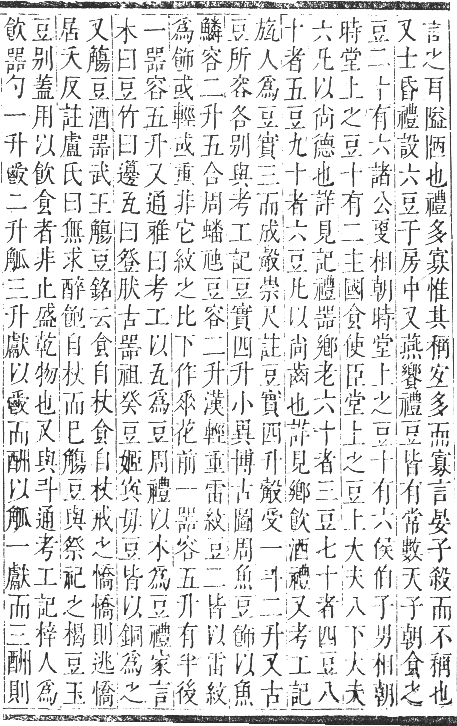 言之耳隘陋也禮多寡惟其稱安多而寡言晏子殺而不稱也
又士昏禮設六豆于房中又燕饗禮豆皆有常數天子朝食之
豆二十有六諸公叓相朝時堂上之豆十有六侯伯子男相朝
時堂上之豆十有二主國食使臣堂上之豆上大夫八下大夫
六凡以尚德也詳見記禮器鄉老六十者三豆七十者四豆八
十者五豆九十者六豆凡以尚齒也詳見鄉飲酒禮又考工記
旊人為豆實三而成觳崇尺註豆實四升觳受一斗二升又古
豆所容各别與考工記豆實四升小異博古圖周魚豆飾以魚
鱗容二升五合周蟠虺豆容二升漢輕重雷紋豆二皆以雷紋
為飾或輕或重非它紋之比下作垂花前一器容五升有半後
一器容五升又通雅曰考工以瓦為豆周禮以木為豆禮家言
木曰豆竹曰籩瓦曰豋肰古器祖癸豆姬寏毋豆皆以銅為之
又觴豆酒器武王觴豆銘云食自杖食自杖戒之憍憍則逃憍
居夭反註盧氏曰無求醉飽自杖而已觴豆與祭祀之楬豆玉
豆别蓋用以飲食者非止盛乾物也又與斗通考工記梓人為
飲器勺一升爵二升觚三升獻以爵而酬以觚一獻而三酬則